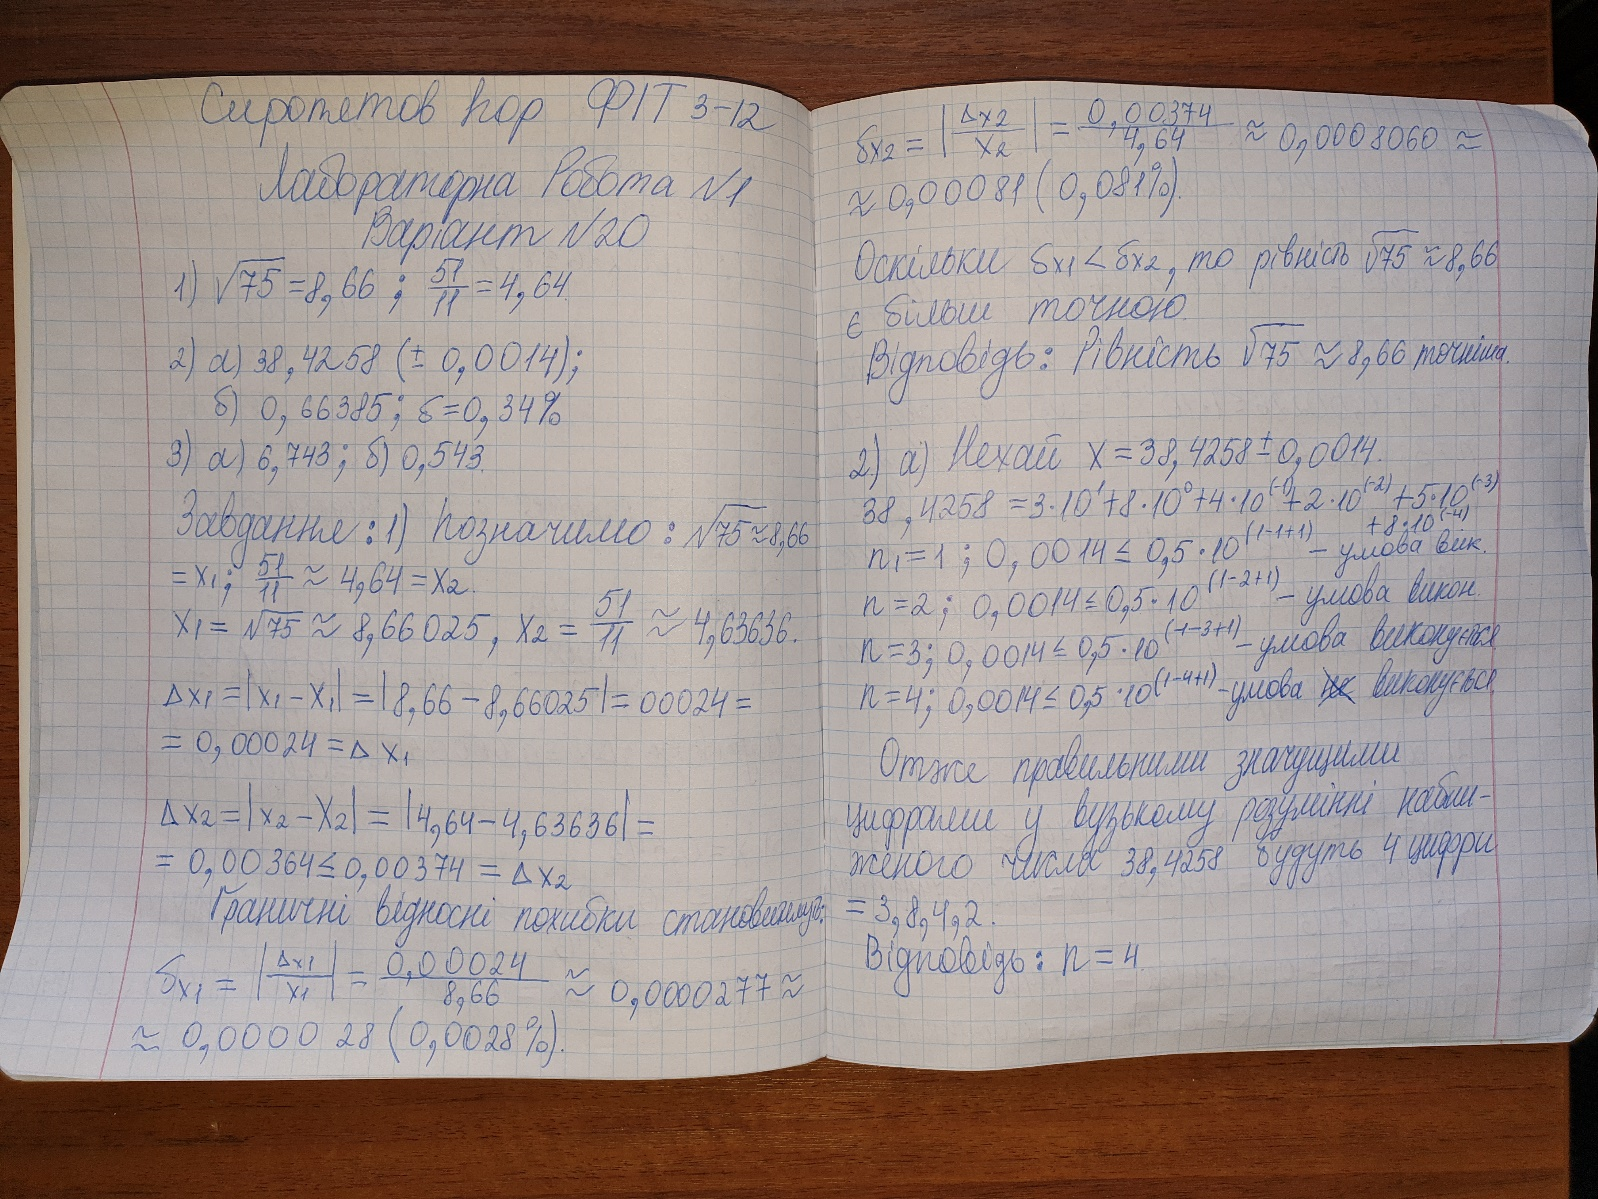 Сиропетов Ігор ФІТ 3-12
Лабораторна Робота №1
Варіант №20
1) √75 = 8,66 ; 51/11 = 4,64
2) а) 38,4258 (± 0,0014);
б) 0,66385; δ = 0,34%
3) а) 6,743; б) 0,543.
Завдання: 1) Позначимо: √75 ≈ 8,66
= x₁; 51/11 ≈ 4,64 = x₂.
X₁ = √75 ≈ 8,66025, X₂ = 51/11 ≈ 4,63636.
Δx₁ = |x₁ - X₁| = |8,66 - 8,66025| = 00024 =
= 0,00024 = Δx₁
Δx₂ = |x₂ - X₂| = |4,64 - 4,63636| =
= 0,00364 ≤ 0,00374 = Δx₂
Граничні відносні похибки становитимуть:
δx₁ = |Δx₁/x₁| = 0,00024/8,66 ≈ 0,0000277 ≈
≈ 0,0000 28 (0,0028%).
δx₂ = |Δx₂/x₂| = 0,00374/4,64 ≈ 0,0008060 ≈
≈ 0,00081 (0,081%).
Оскільки δx₁ < δx₂, то рівність √75 ≈ 8,66
є більш точною
Відповідь: Рівність √75 ≈ 8,66 точніша.
2) а) Нехай X = 38,4258 ± 0,0014.
38,4258 = 3·10¹ + 8·10⁰ + 4·10^(-1) + 2·10^(-2) + 5·10^(-3)
+ 8·10^(-4)
n₁ = 1 ; 0,0014 ≤ 0,5·10^(1-1+1) - умова вик.
n = 2; 0,0014 ≤ 0,5·10^(1-2+1) - умова викон.
n = 3; 0,0014 ≤ 0,5·10^(1-3+1) - умова виконується
n = 4; 0,0014 ≤ 0,5·10^(1-4+1) - умова виконується
Отже правильними значущими
цифрами у вузькому розумінні набли-
женого числа 38,4258 будуть 4 цифри
= 3,8,4,2.
Відповідь: n = 4